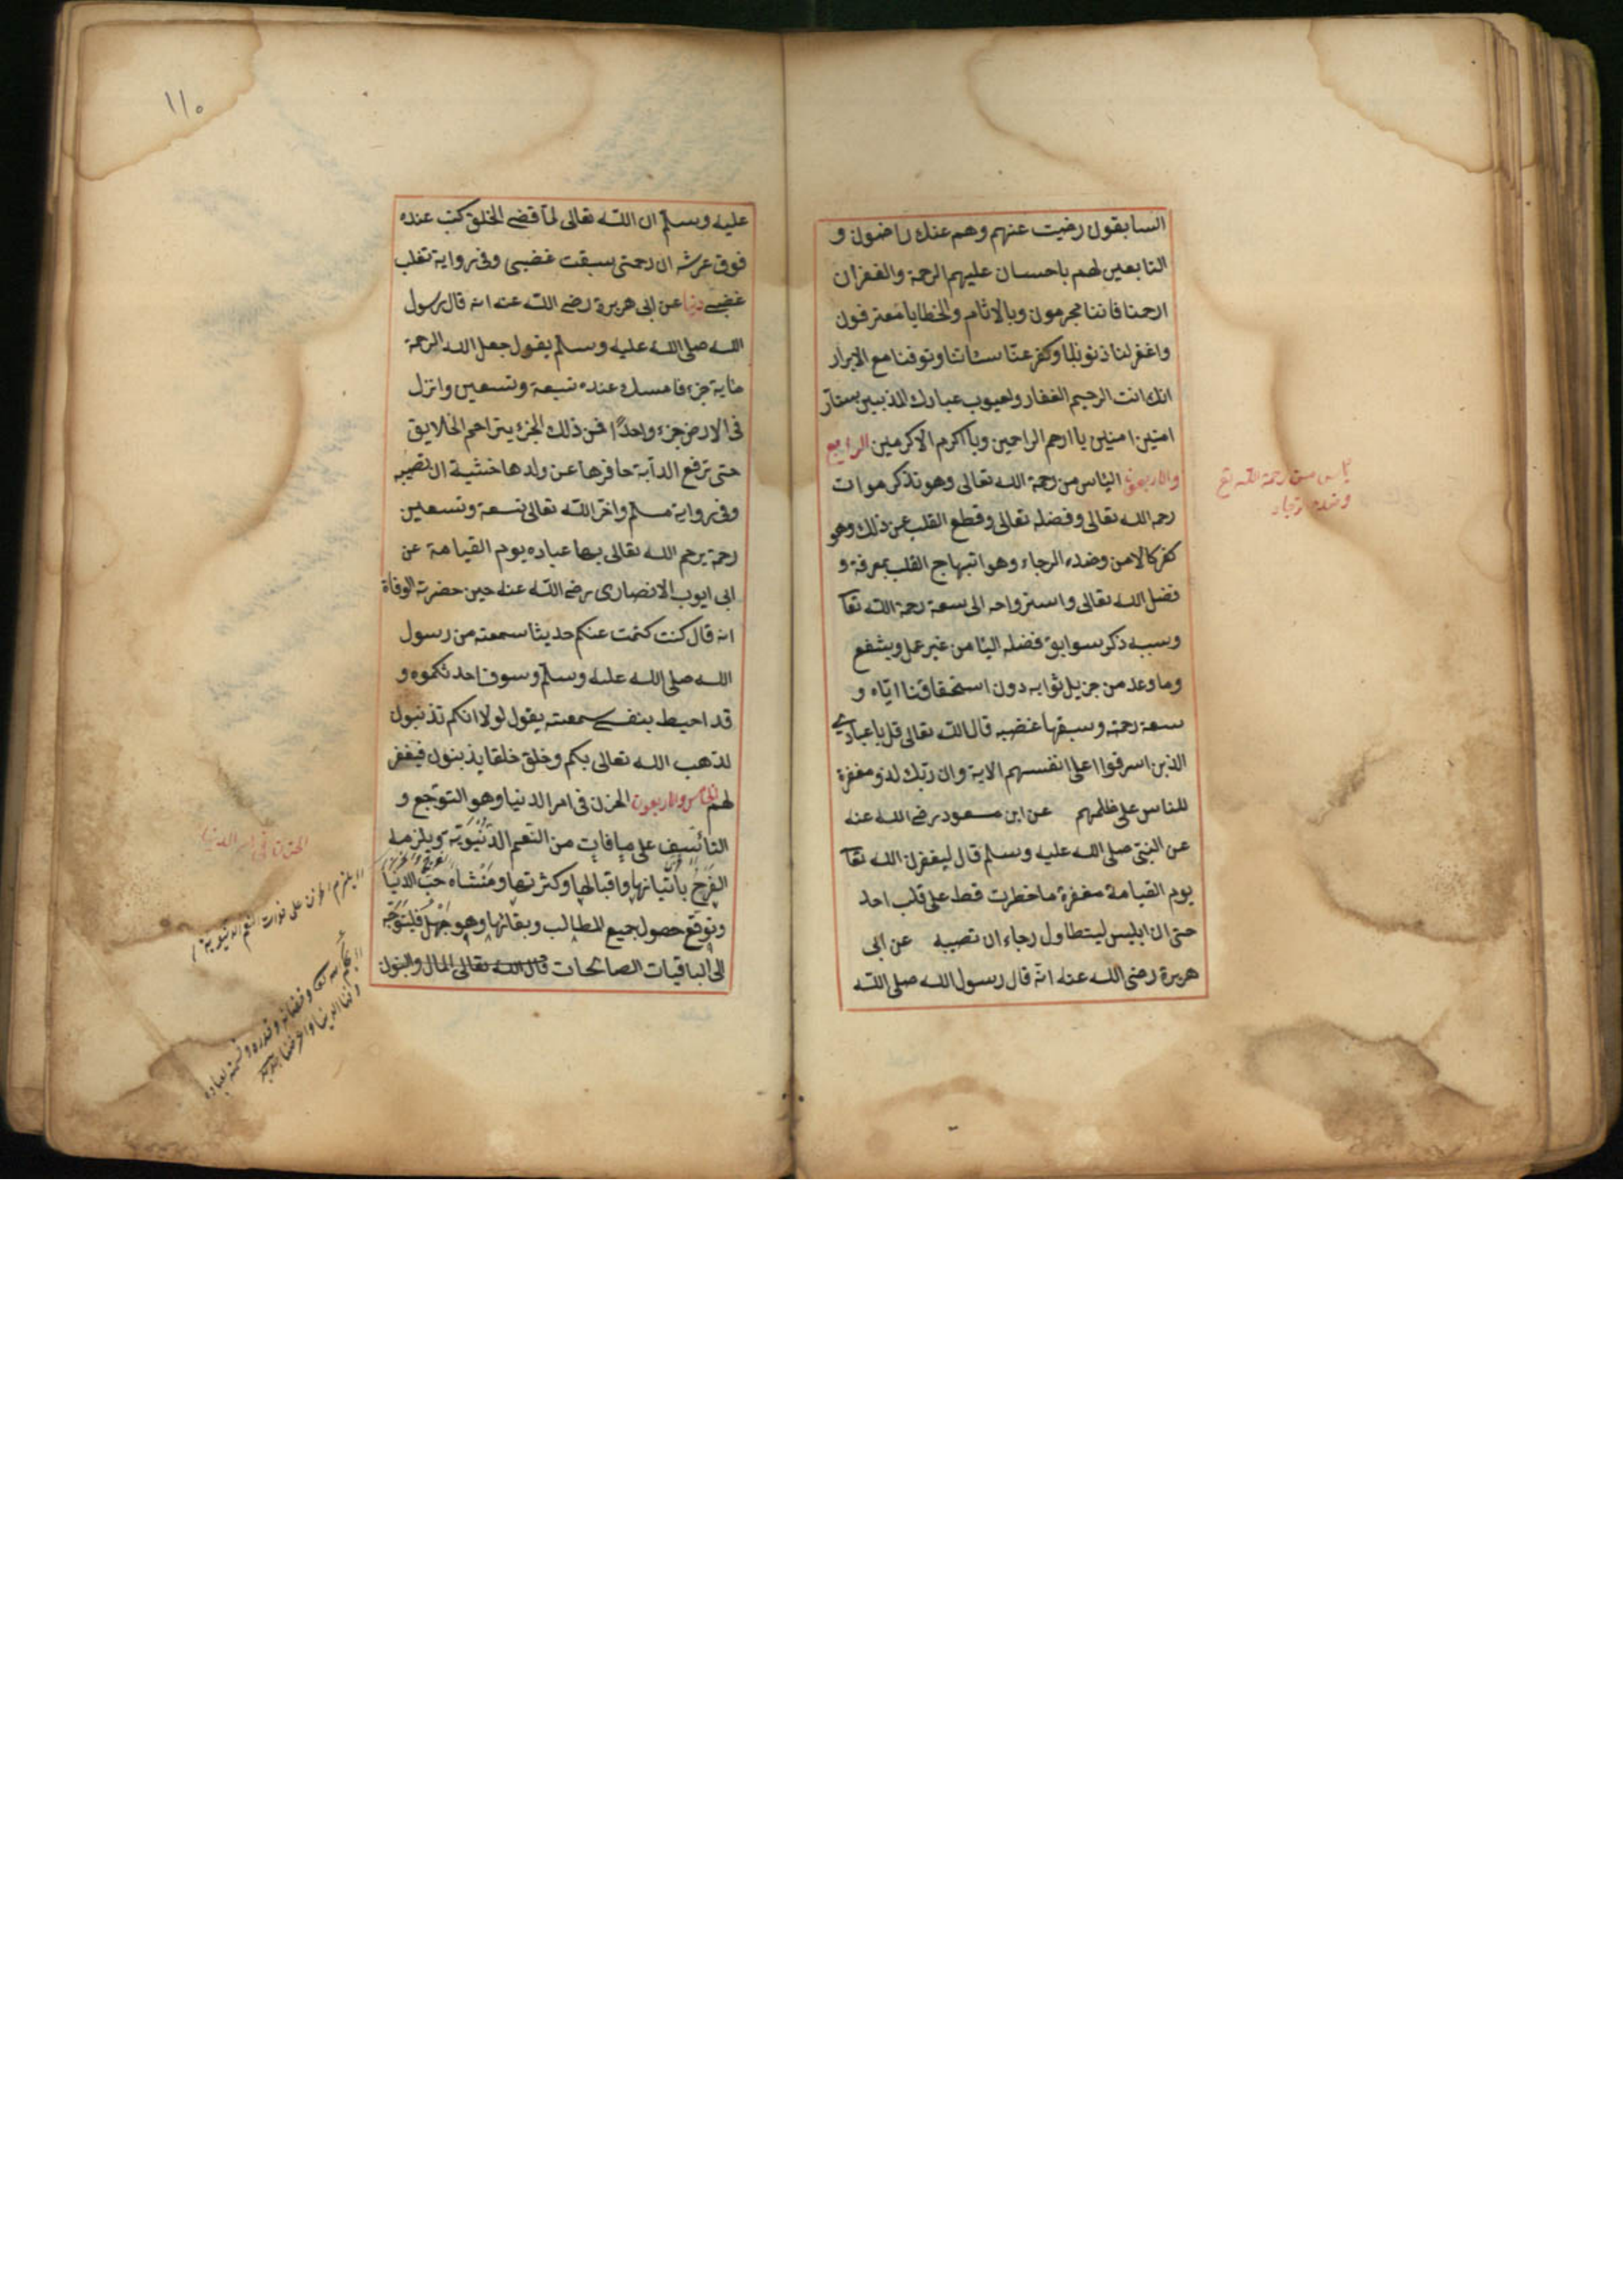 السابقون رضيت عنهم وهم عنك راضون و
التابعين لهم باحسان عليهم الرحمة والغفران
ارحمنا فاننا مجرمون وبالاثام والخطايا معترفون
واغفر لنا ذنوبنا وكفر عنا سيئاتنا وتوفنا مع الابرار
انك انت الرحيم الغفار ولعيوب عبادك المذنبين ستار
امين امين يا ارحم الراحمين ويا اكرم الاكرمين الرابع
والاربعون الياس من رحمة الله تعالى وهو تذكر موات
رحمة الله تعالى وفضله تعالى وقطع القلب عن ذلك وهو
كفر كالامن وضده الرجاء وهو ابتهاج القلب بمعرفة و
فضل الله تعالى واسترواحه الى سعة رحمة الله تعا
وسببه ذكر سوابق فضله الينا من غير عمل وشفع
وما وعد من جزيل ثوابه دون استحقاقنا اياه و
سعة رحمته وسبقها غضبه قال الله تعالى قل يا عبادي
الذين اسرفوا على انفسهم الاية وان ربك لذو مغفرة
للناس على ظلمهم عن ابن مسعود رضى الله عنه
عن النبى صلى الله عليه وسلم قال ليغفرن الله تعا
يوم القيامة مغفرة ما خطرت قط على قلب احد
حتى ان ابليس ليتطاول رجاء ان تصيبه عن ابى
هريرة رضى الله عنه انه قال رسول الله صلى الله
ياس من رحمة الله تع
وضده رجاء
١١٠
عليه وسلم ان الله تعالى لما قضى الخلق كتب عنده
فوق عرشه ان رحمتى سبقت غضبى وفى رواية تغلب
غضبى دنيا عن ابى هريرة رضى الله عنه انه قال رسول
الله صلى الله عليه وسلم يقول جعل الله الرحمة
مائة جزء فامسك عنده تسعة وتسعين وانزل
فى الارض جزء واحدا فمن ذلك الجزء يتراحم الخلايق
حتى ترفع الدابة حافرها عن ولدها خشية ان تصيبه
وفى رواية مسلم واخر الله تعالى تسعة وتسعين
رحمة يرحم الله تعالى بها عباده يوم القيامة عن
ابى ايوب الانصارى رضى الله عنه حين حضرته الوفاة
انه قال كنت كتمت عنكم حديثا سمعته من رسول
الله صلى الله عليه وسلم وسوف احدثكموه و
قد احيط بنفسى سمعته يقول لولا انكم تذنبون
لذهب الله تعالى بكم وخلق خلقا يذنبون فيغفر
لهم الخامس والاربعون الحزن فى امر الدنيا وهو التوجع و
التأسف على ما فات من النعم الدنيوية ويلزمه
الفرح باتيانها واقبالها وكثرتها ومنشأه حب الدنيا
وتوقع حصول جميع المطالب وبقائها وهو جهل فليتوجه
الى الباقيات الصالحات قال الله تعالى المال والبنون
الحزن فى امر الدنيا
يلزم الحزن على فوات النعم الدنيوية